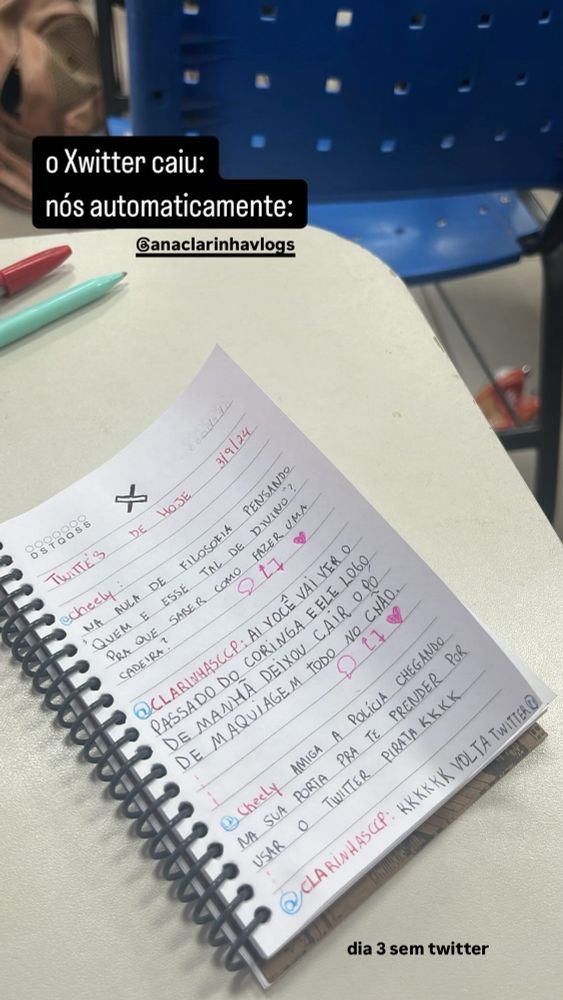 o Xwitter caiu:
nós automaticamente:
@anaclarinhavlogs
D S T Q Q S S
X
TWITTE'S DE HOJE 3/9/24
@cheely:
NA AULA DE FILOSOFIA PENSANDO
"QUEM É ESSE TAL DE DIVINO"?
PRA QUE SABER COMO FAZER UMA
CADEIRA?
@CLARINHASCCP: AI VOCÊ VAI VER O
PASSADO DO CORINGA E ELE LOGO
DE MANHÃ DEIXOU CAIR O PÓ
DE MAQUIAGEM TODO NO CHÃO.
@Cheely AMIGA A POLÍCIA CHEGANDO
NA SUA PORTA PRA TE PRENDER POR
USAR O TWITTER PIRATA KKKK
@CLARINHASCCP: KKKKKK VOLTA TWITTER
dia 3 sem twitter